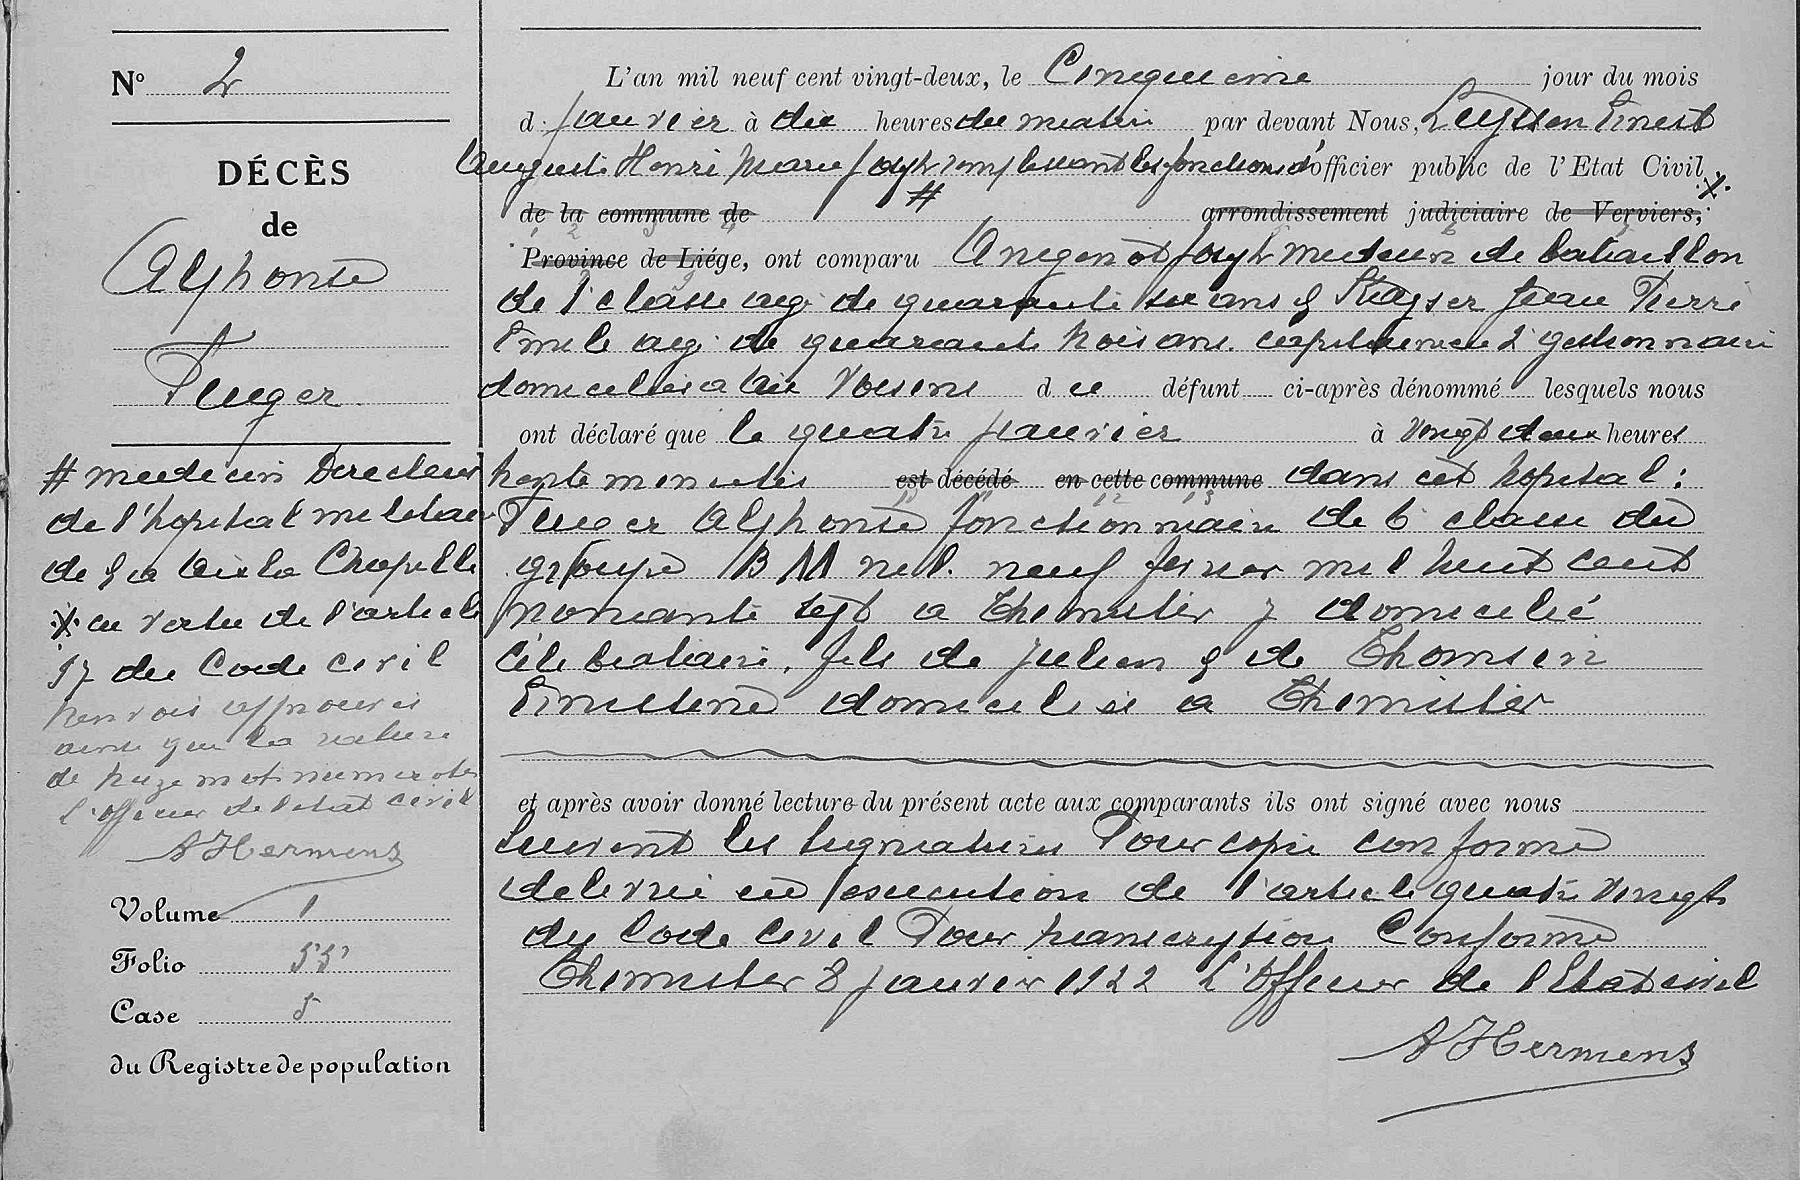 N° 2
DÉCÈS
de
Alphonse
Pluger
# medecin Directeur
de l'hopital militaire
de g a Aix la Chapelle
·X· en vertu de l'article
97 du Code civil
Renvois approuvés
ainsi que la rature
de treize mots numerotés
l'officier de l'etat civil
A Hermens
Volume 1
Folio 55
Case 5
du Registre de population
L'an mil neuf cent vingt-deux, le Cinquieme jour du mois
d janvier à dix heures du matin par devant Nous, Ernest
Auguste Henri Marie Joseph remplissant les fonctions d'officier public de l'Etat Civil ·X·
de la commune de # arrondissement judiciaire de Verviers,
Province de Liége, ont comparu Angenot Joseph medecin de bataillon
de 1e classe agé de quarante six ans & Stayser Jean Pierre
Emile agé de quarante trois ans gestionnaire
domiciliés a Aix Voisins d u défunt ci-après dénommé lesquels nous
ont déclaré que le quatre janvier à vingt deux heures
trente minutes est décédé en cette commune dans cet hopital :
Pluger Alphonse fonctionnaire de 6e classe du
groupe B M né l. neuf fevrier mil huit cent
nonante sept a Thimister y domicilié
Célibataire, fils de Julien & de Thomsin
Ernestine domiciliés a Thimister
et après avoir donné lecture du présent acte aux comparants ils ont signé avec nous
Suivent les signatures Pour copie conforme
delivrée en execution de l'article quatre vingt
du Code Civil Pour transcription Conforme
Thimister 8 janvier 1922 L'Officier de l'Etat civil
A Hermens